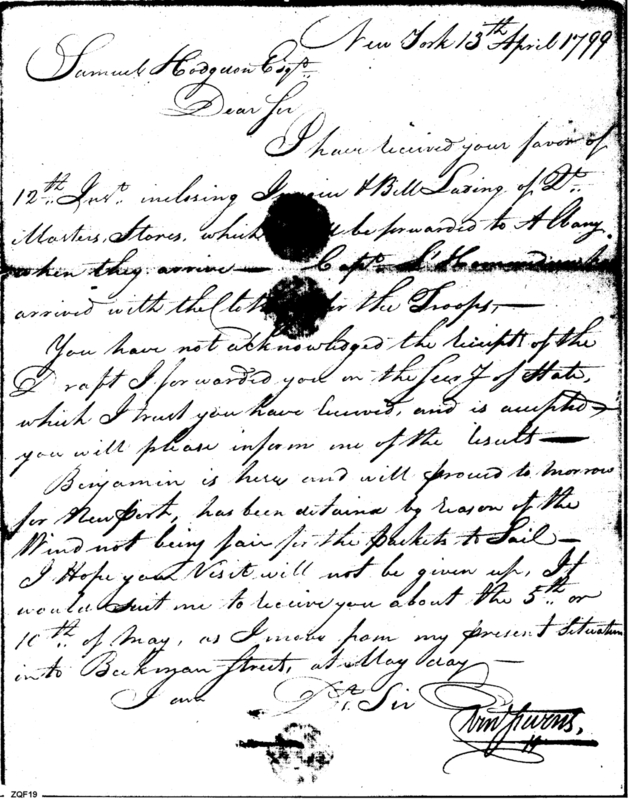 New York 13th April 1799
Samuel Hodgdon Esqr.
Dear Sir
I have received your favor of
12th. Inst. inclosing Invoice & Bill Lading of Qr.
Masters, Stores, which be forwarded to Albany.
when they arrive — Capt.
arrived with the for the Troops, —
You have not acknowledged the receipt of the
Draft I forwarded you on the Secy of State,
which I trust you have received, and is accepted —
you will please inform me of the result —
Benjamin is here and will proceed to morrow
for New port, has been detained by reason of the
Wind not being fair for the packets to Sail —
I Hope your Visit will not be given up, It
would suit me to receive you about the 5th. or
10th. of May, as I move from my present Situation
into Beekman Street, at May day —
I am Dr. Sir
Stevens,
ZQF19